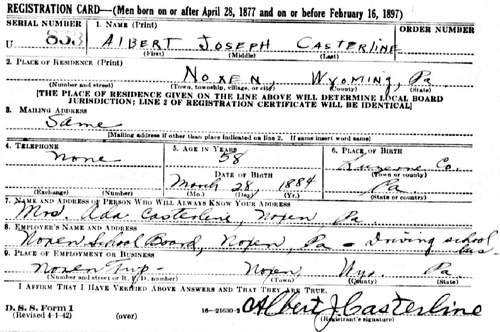 REGISTRATION CARD—(Men born on or after April 28, 1877 and on or before February 16, 1897)
SERIAL NUMBER 1. NAME (Print) ORDER NUMBER
U 853 ALBERT JOSEPH CASTERLINE
(First) (Middle) (Last)
2. PLACE OF RESIDENCE (Print)
NOXEN, WYOMING, Pa
(Number and street) (Town, township, village, or city) (County) (State)
[THE PLACE OF RESIDENCE GIVEN ON THE LINE ABOVE WILL DETERMINE LOCAL BOARD
JURISDICTION; LINE 2 OF REGISTRATION CERTIFICATE WILL BE IDENTICAL]
3. MAILING ADDRESS
Same
[Mailing address if other than place indicated on line 2. If same insert word same]
4. TELEPHONE 5. AGE IN YEARS 6. PLACE OF BIRTH
none 58 Luzerne Co.
DATE OF BIRTH (Town or county)
March 28, 1884 Pa
(Exchange) (Number) (Mo.) (Day) (Yr.) (State or country)
7. NAME AND ADDRESS OF PERSON WHO WILL ALWAYS KNOW YOUR ADDRESS
Mrs. Ada Casterline, Noxen Pa.
8. EMPLOYER'S NAME AND ADDRESS
Noxen School Board, Noxen, Pa - Driving school bus
9. PLACE OF EMPLOYMENT OR BUSINESS
Noxen Twp - Noxen, Wyo. Pa
(Number and street or R. F. D. number) (Town) (County) (State)
I AFFIRM THAT I HAVE VERIFIED ABOVE ANSWERS AND THAT THEY ARE TRUE.
D. S. S. Form 1
(Revised 4-1-42) (over) 16—21630-2 Albert J Casterline
(Registrant's signature)